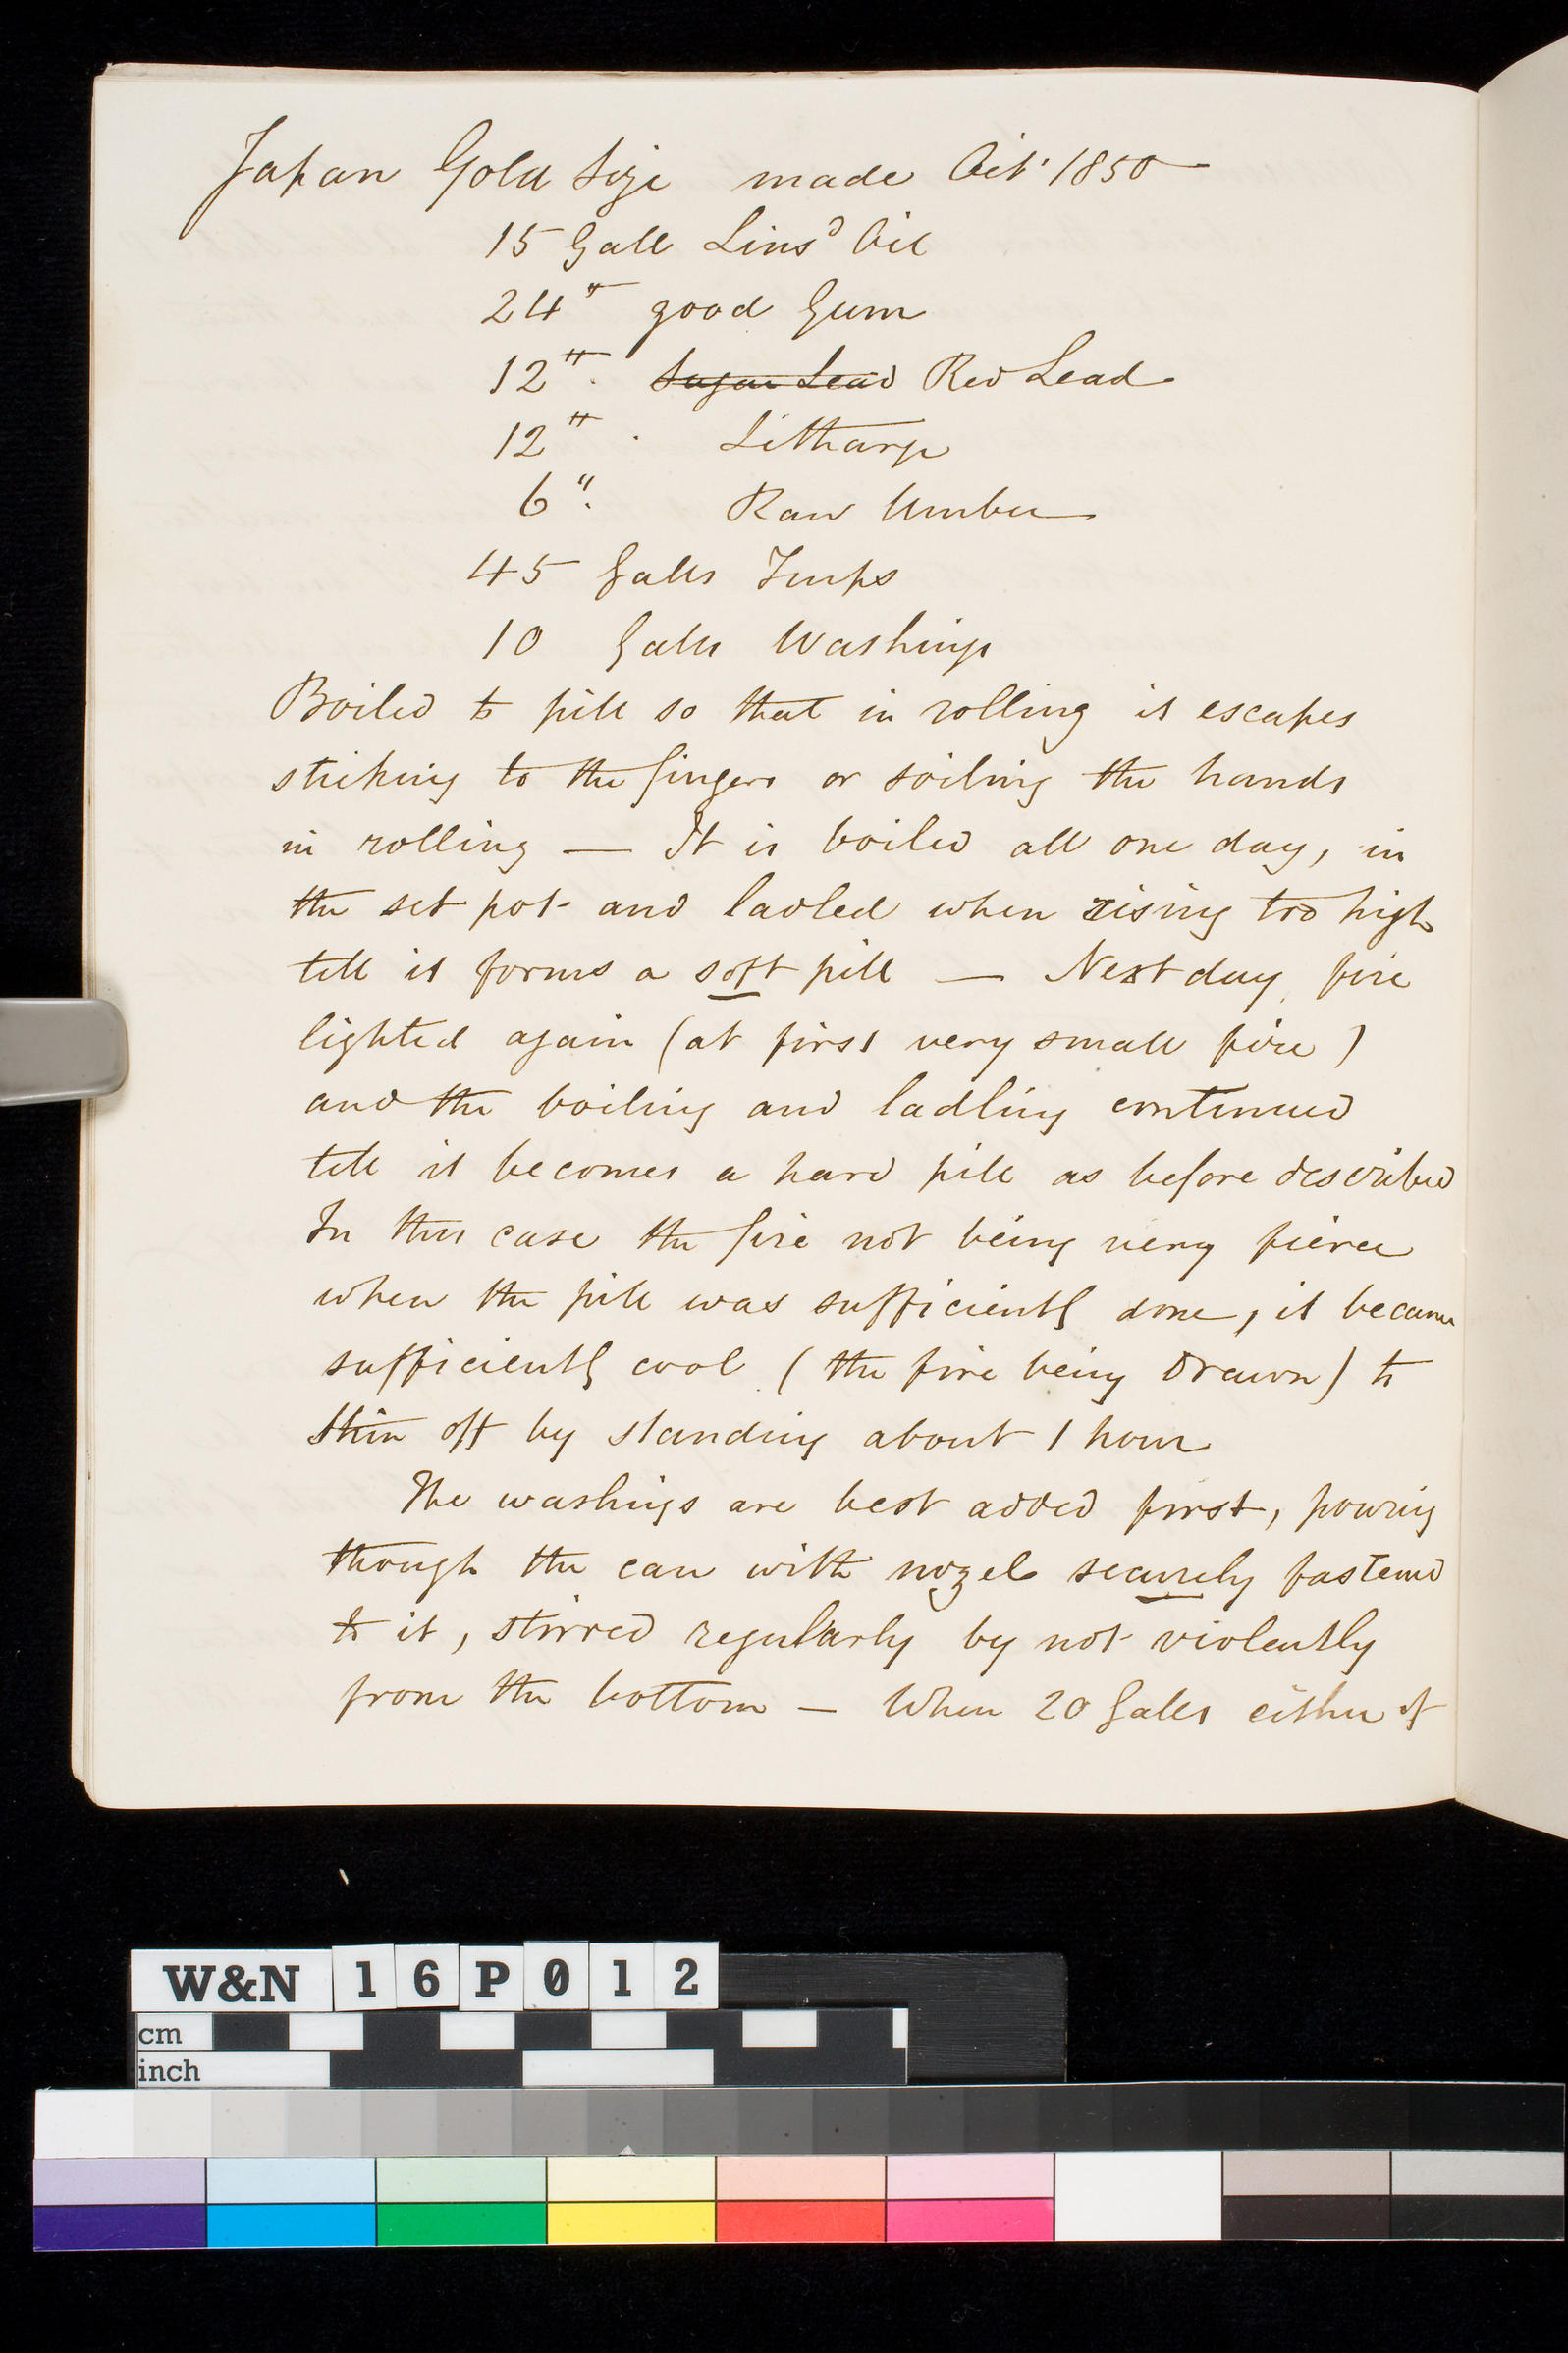 Japan Gold Size made Oct 1850
15 Gall Lins^d Oil
24 " good Gum
12 " . ~~Sugar Lead~~ Red Lead
12 " . Litharge
6 " . Raw Umber
45 Galls Turps
10 Galls Washings
Boiled to pill so that in rolling it escapes
sticking to the fingers or soiling the hands
in rolling — It is boiled all one day, in
the set pot and ladled when rising too high
till it forms a soft pill — Next day fire
lighted again (at first very small fire)
and the boiling and ladling continued
till it becomes a hard pill as before described
In this case the fire not being very fierce
when the pill was sufficiently done, it became
sufficiently cool (the fire being drawn) to
thin off by standing about 1 hour
The washings are best added first, pouring
through the can with nozel securely fastened
to it, stirred regularly by not violently
from the bottom — When 20 Galls either of
W&N 16P012
cm
inch